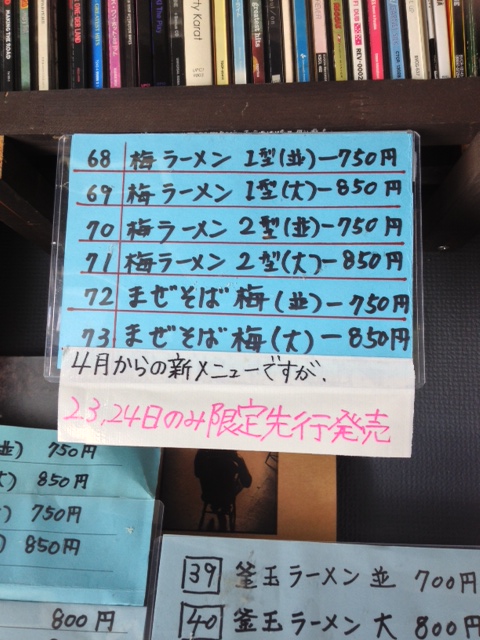 68 梅ラーメン 1型(並)ー750円
69 梅ラーメン 1型(大)ー850円
70 梅ラーメン 2型(並)ー750円
71 梅ラーメン 2型(大)ー850円
72 まぜそば 梅(並)ー750円
73 まぜそば梅(大)ー850円
4月からの新メニューですが、
23,24日のみ限定先行発売
並) 750円
大) 850円
750円
850円
800円
39 釜玉ラーメン 並 700円
40 釜玉ラーメン 大 800円